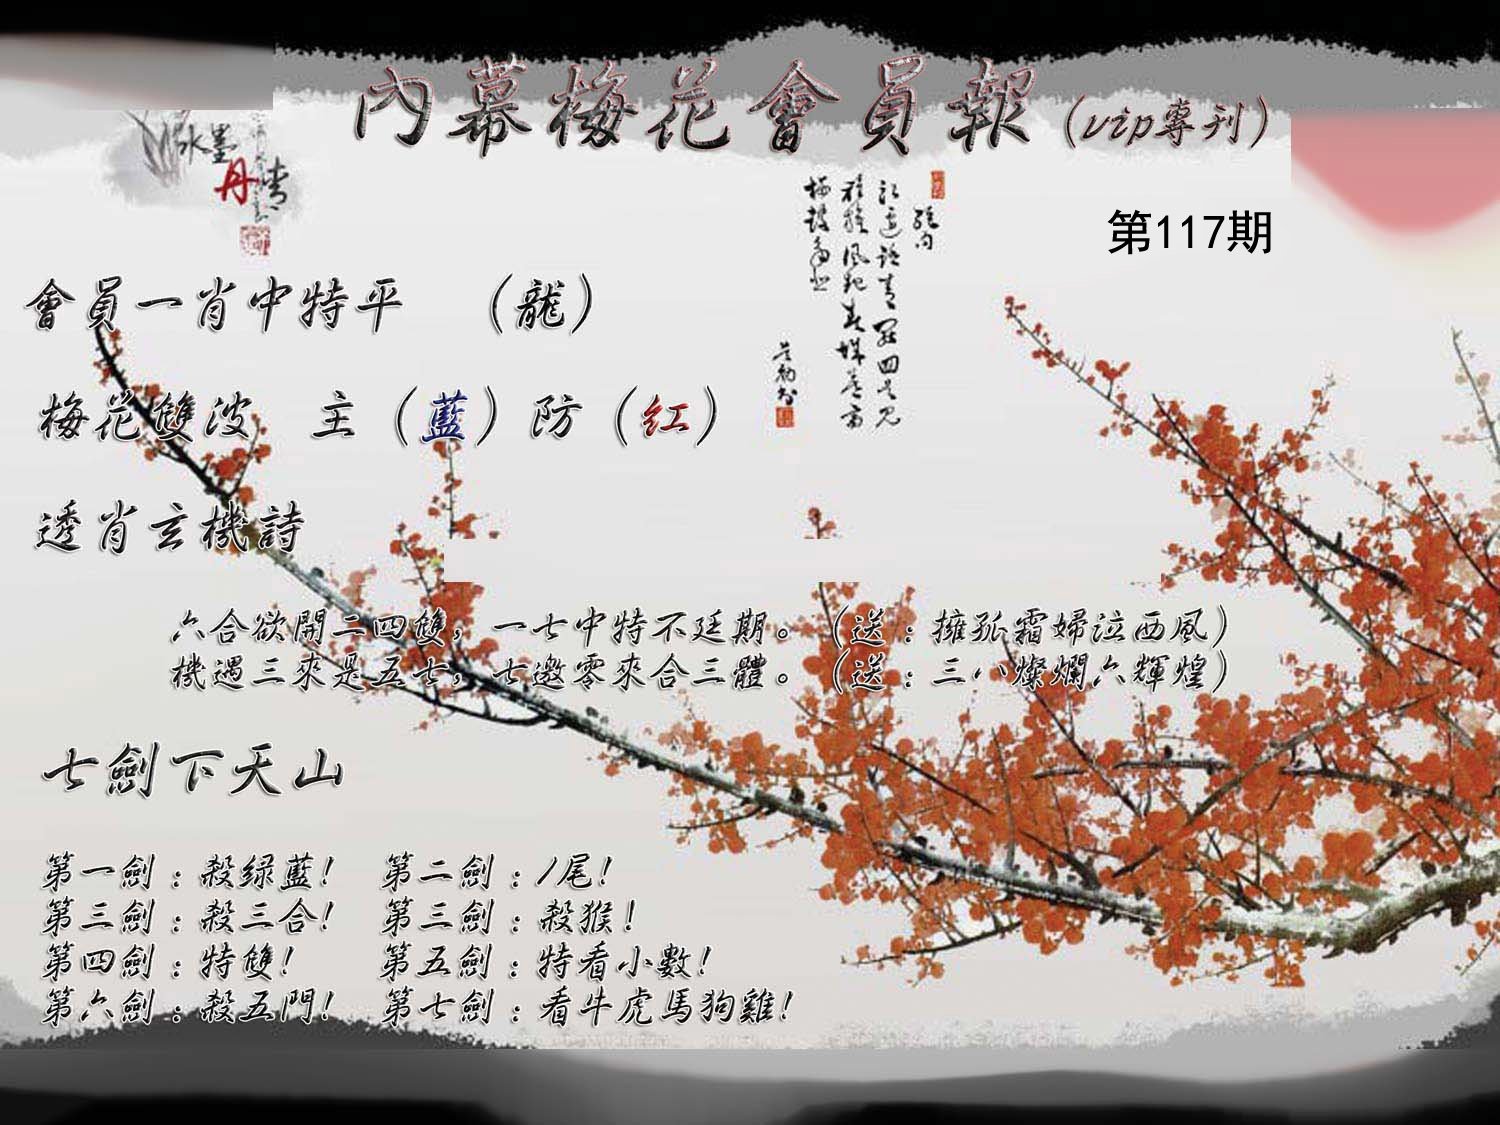 內幕梅花會員報（vip專刊）
水墨
丹青
第117期
會員一肖中特平　（龍）
梅花雙波　主（藍）防（紅）
透肖玄機詩
六合欲開二四雙，一七中特不廷期。（送：擁孤霜婦泣西風）
機遇三來是五七，七邀零來合三體。（送：三八燦爛六輝煌）
七劍下天山
第一劍：殺绿藍！　第二劍：1尾！
第三劍：殺三合！　第三劍：殺猴！
第四劍：特雙！　第五劍：特看小數！
第六劍：殺五門！　第七劍：看牛虎馬狗雞！